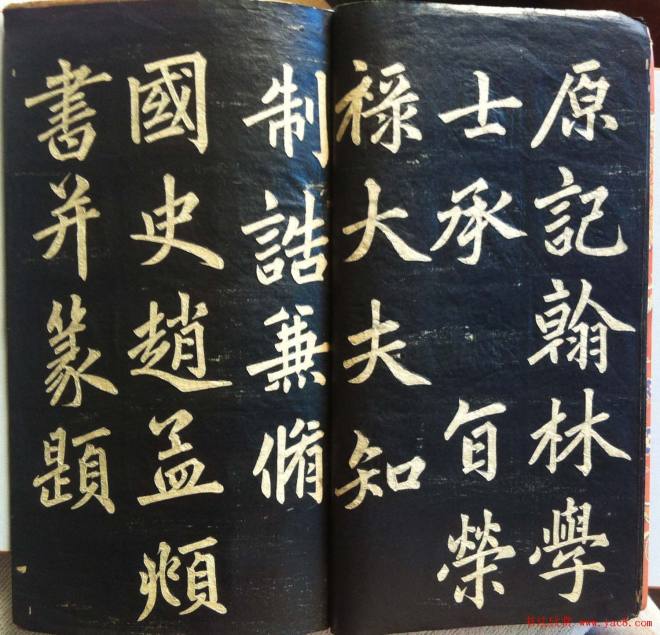 原記翰林學
士承旨榮
祿大夫知
制誥兼脩
國史趙孟頫
書并篆題
书法欣赏 www.yac8.com